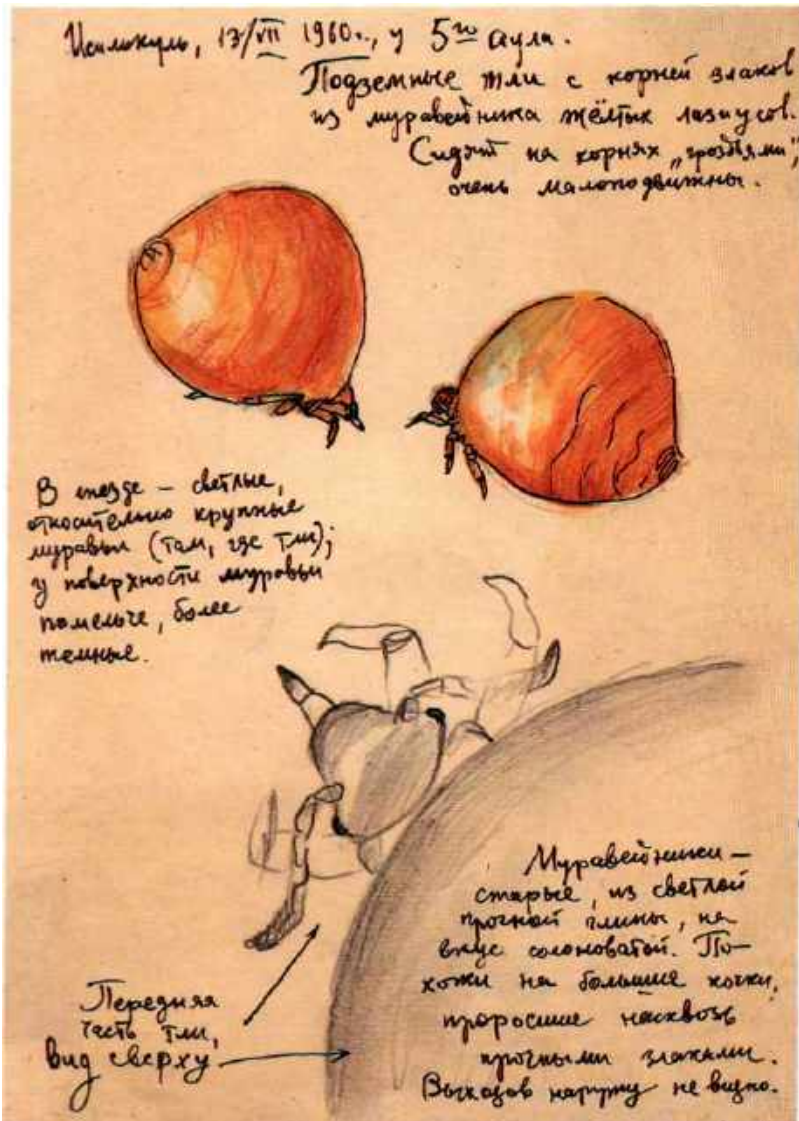 Исилькуль, 13/VII 1960г., у 5го аула.
Подземные тли с корней злаков
из муравейника жёлтых лазиусов.
Сидят на корнях „гроздьями“,
очень малоподвижны.
В гнезде – светлые,
относительно крупные
муравьи (там, где тли);
у поверхности муравьи
помельче, более
темные.
Муравейники –
старые, из светлой
прочной глины, на
вкус солоноватой. По-
хожи на большие кочки,
проросшие насквозь
прочными злаками.
Выходов наружу не видно.
Передняя
часть тли,
вид сверху